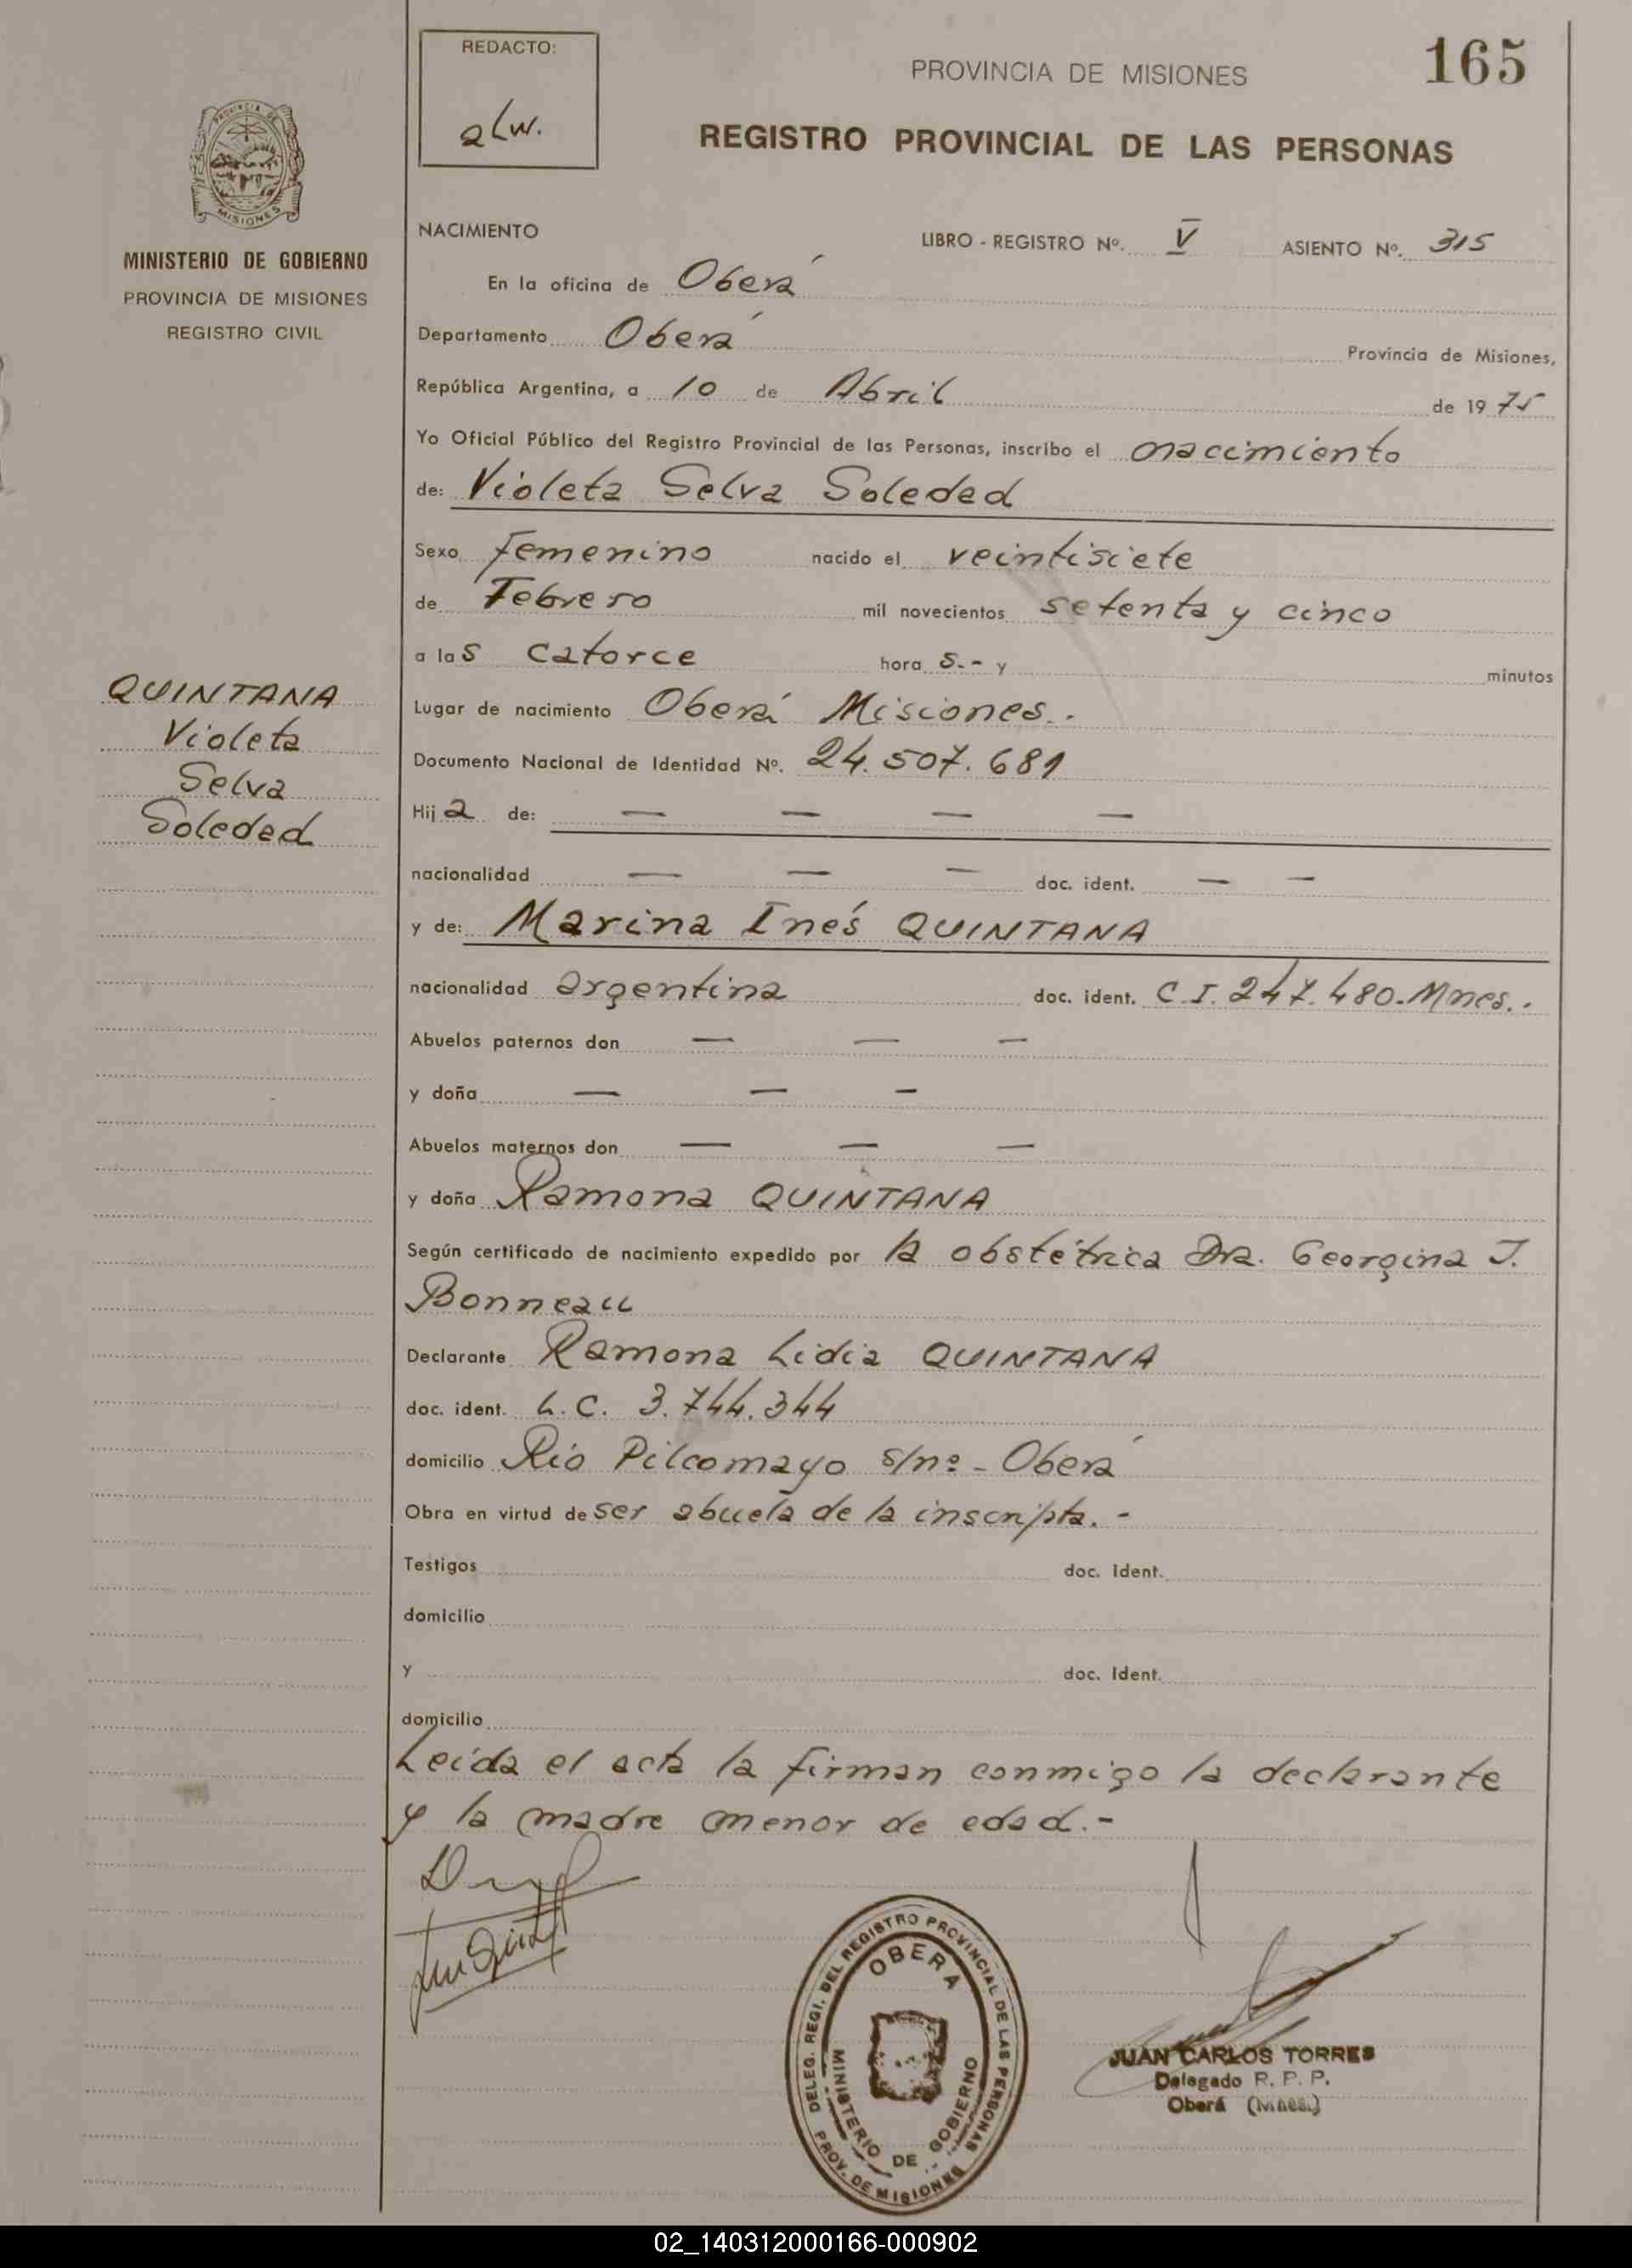 REDACTO:
PROVINCIA DE MISIONES
165
REGISTRO PROVINCIAL DE LAS PERSONAS
PROVINCIA DE
MISIONES
MINISTERIO DE GOBIERNO
PROVINCIA DE MISIONES
REGISTRO CIVIL
NACIMIENTO LIBRO - REGISTRO Nº. V ASIENTO Nº. 315
En la oficina de Oberá
Departamento Oberá Provincia de Misiones,
República Argentina, a 10 de Abril de 1975
Yo Oficial Público del Registro Provincial de las Personas, inscribo el nacimiento
de: Violeta Selva Soledad
Sexo Femenino nacido el veintisiete
de Febrero mil novecientos setenta y cinco
a las catorce hora s.- y minutos
QUINTANA
Violeta
Selva
Soledad
Lugar de nacimiento Oberá Misiones.-
Documento Nacional de Identidad Nº. 24.507.681
Hija de: — — — —
nacionalidad — — — doc. ident. — —
y de: Marina Inés QUINTANA
nacionalidad argentina doc. ident. C.I. 247.480-Mnes.-
Abuelos paternos don — — —
y doña — — —
Abuelos maternos don — — —
y doña Ramona QUINTANA
Según certificado de nacimiento expedido por la obstétrica Dra. Georgina J.
Bonneau
Declarante Ramona Lidia QUINTANA
doc. ident. L.C. 3.744.344
domicilio Río Pilcomayo s/nº - Oberá
Obra en virtud de ser abuela de la inscripta.-
Testigos doc. ident.
domicilio
y doc. ident.
domicilio
Leída el acta la firman conmigo la declarante
y la madre menor de edad.-
DELEG. REGI. DEL REGISTRO PROVINCIAL DE LAS PERSONAS
OBERA
MINISTERIO DE GOBIERNO
PROV. DE MISIONES
JUAN CARLOS TORRES
Delegado R. P. P.
Oberá (Mnes.)
02_140312000166-000902